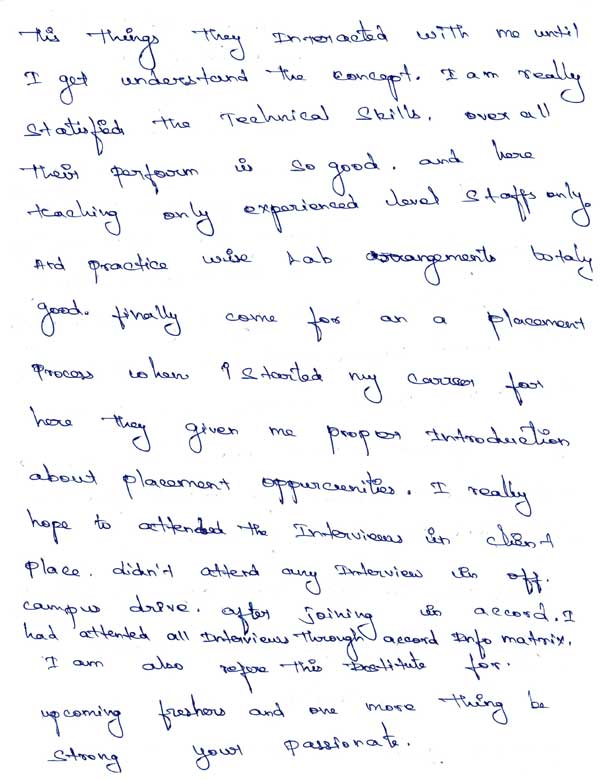 this things they Interacted with me until
I get understand the concept. I am really
Statisfied the Technical Skills. over all
their perform is so good. and here
teaching only experienced level staffs only.
And practice wise Lab arrangements totaly
good. finally come for an a placement
process when I started my carrer for
here they given me proper Introduction
about placement oppurcunities. I really
hope to attended the Interviews in client
place. didn't attend any Interview in off.
campus drive. after joining in accord. I
had attented all Interviews through accord Info matrix.
I am also refere this Institute for.
upcoming freshers and one more thing be
strong your passionate.